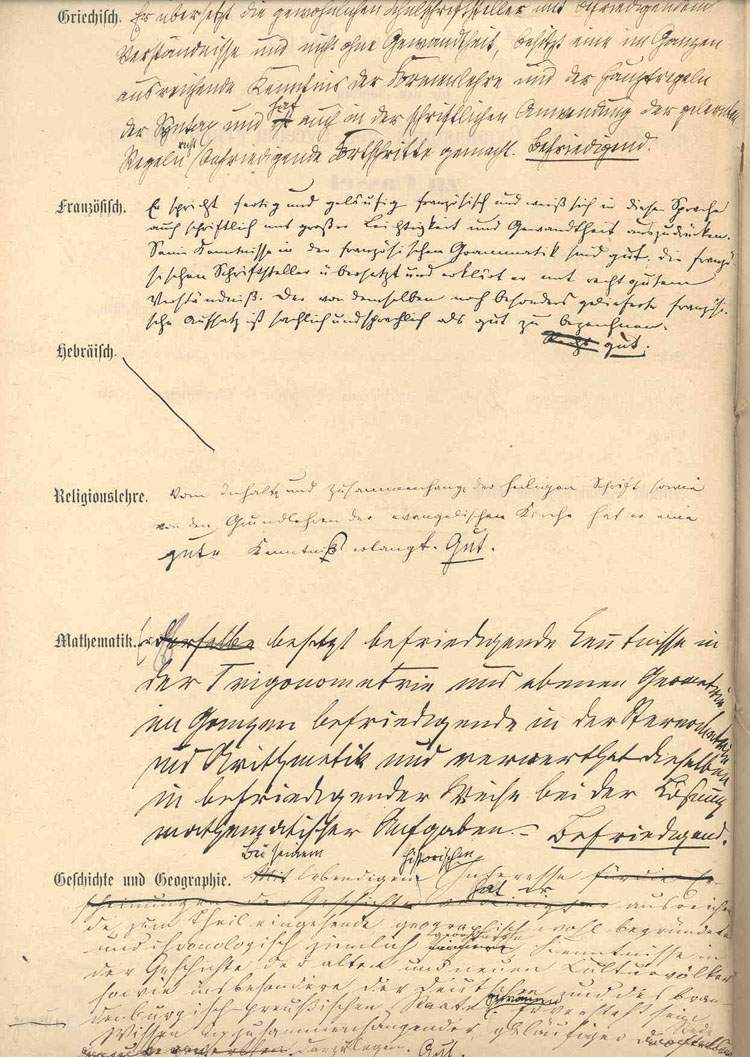 Griechisch. Er übersetzt die gewöhnlichen Schulschriftsteller mit befriedigendem
Verständnisse und nicht ohne Gewandtheit, besitzt eine im Ganzen
ausreichende Kenntnis der Formenlehre und der Hauptregeln
hat
der Syntax und ist auch in der schriftlichen Anwendung der gelernten
Regeln recht befriedigende Fortschritte gemacht. Befriedigend.
Französisch. Er spricht fertig und geläufig französisch und weiß sich in dieser Sprache
auch schriftlich mit großer Leichtigkeit und Gewandtheit auszudrücken.
Seine Kenntnisse in der französischen Grammatik sind gut. die franzö
sischen Schriftsteller übersetzt und erklärt er mit recht gutem
Verständniß. Der von demselben noch besonders gelieferte französi-
sche Aufsatz ist sachlich und sprachlich als gut zu bezeichnen.
Recht gut.
Hebräisch.
Religionslehre. Vom Inhalt und Zusammenhang der heiligen Schrift sowie
von den Grundlehren der evangelischen Kirche hat er eine
gute Kenntniß erlangt. Gut.
Mathematik. Er derselbe besitzt befriedigende Kenntnisse in
der Trigonometrie und ebenen Geometrie,
im Ganzen befriedigende in der Stereometrie
und Arithmetik und verwerthet dieselben
in befriedigender Weise bei der Lösung
mathematischer Aufgaben. – Befriedigend.
Bei seinem historischen
Geschichte und Geographie. Mit lebendigem Interesse für die
hat er
der Geschichte ausreichen
de, zum Theil eingehende, geographisch wohl begründete
und chronologisch ziemlich Kenntnisse in
der Geschichte der alten und neuen Culturvölker
sowie insbesondere der Deutschen und des bran
denburgisch-preußischen Staates Er versteht sein
Wissen in zusammenhängender, geläufiger Rede
darzulegen. Gut.